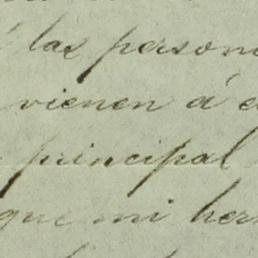 á las person
vienen á e
principal
que mi her